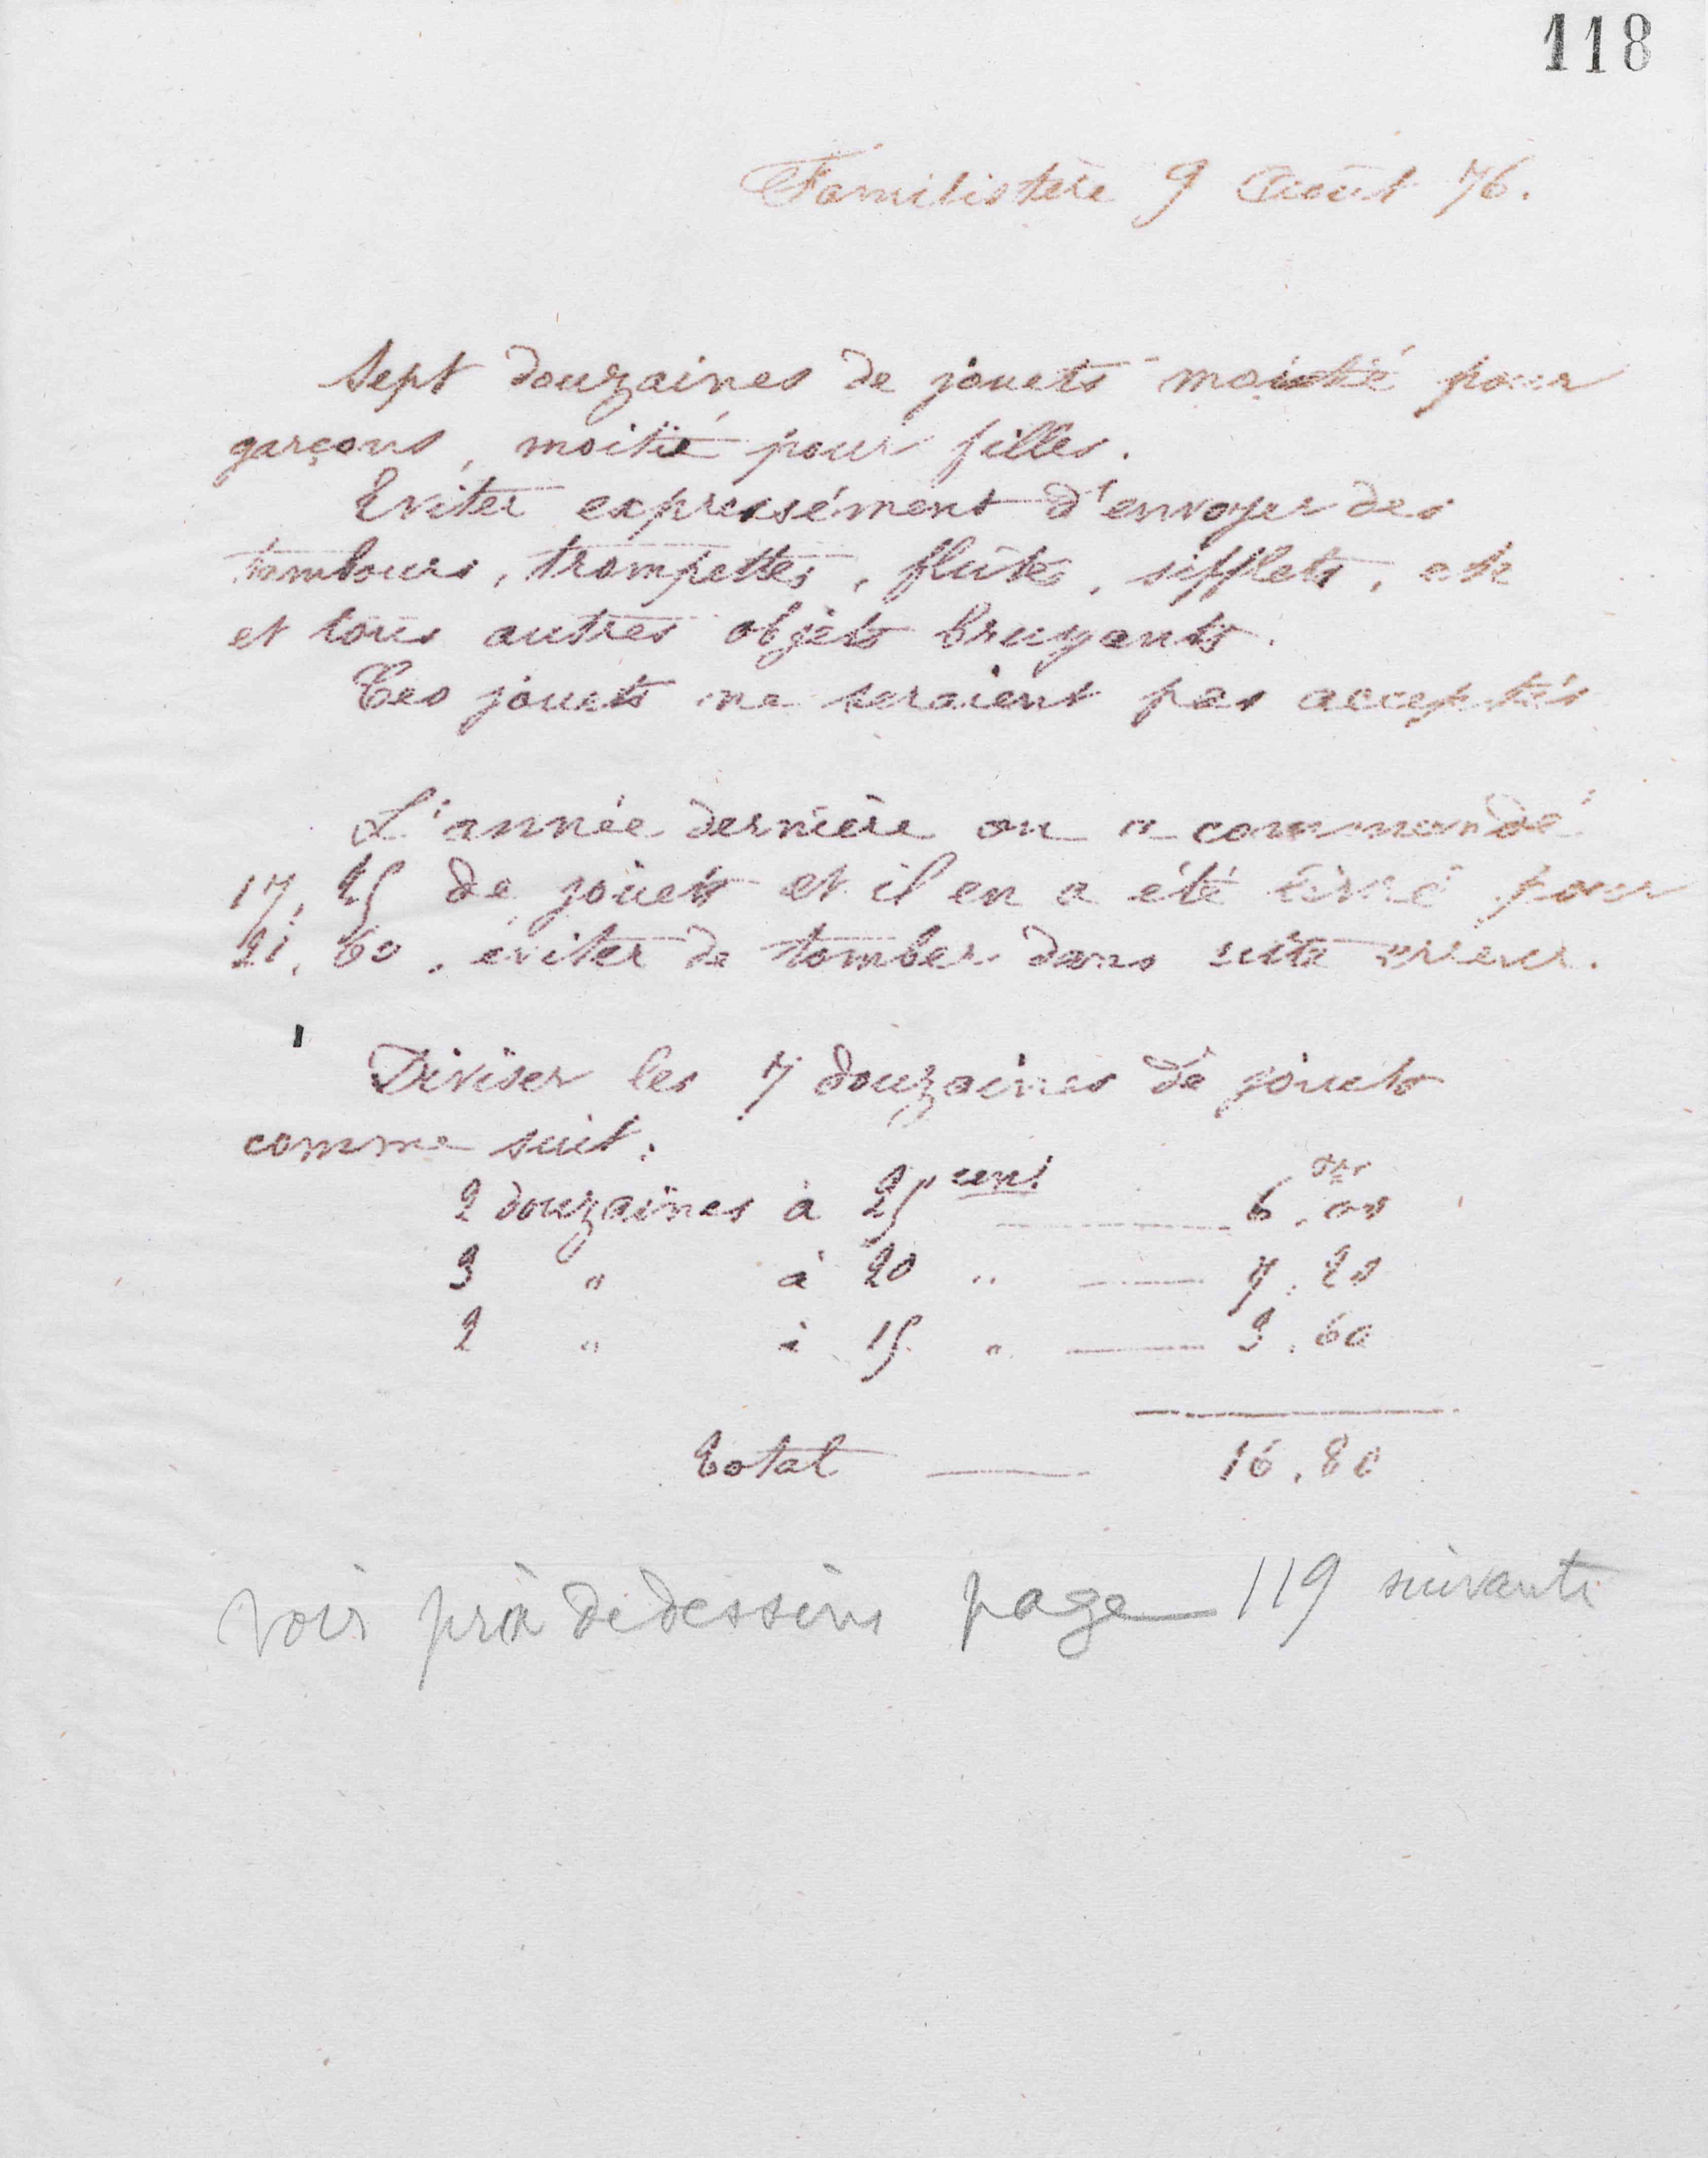 118
Familistère 9 Août 76.
Sept douzaines de jouets moitié pour
garçons, moitié pour filles.
Eviter expressément d'envoyer des
tambours, trompettes, flûtes, sifflets, etc
et tous autres objets bruyants.
Ces jouets ne seraient pas acceptés
L'année dernière on a commandé
17,25 de jouets et il en a été livré pour
21,60. éviter de tomber dans cette erreur.
Diviser les 7 douzaines de jouets
comme suit:
2 douzaines à 25 cent — 6.00
3 " à 20 " — 7.20
2 " à 15 " — 3.60
Total — 16.80
voir prix de dessins page 119 suivante